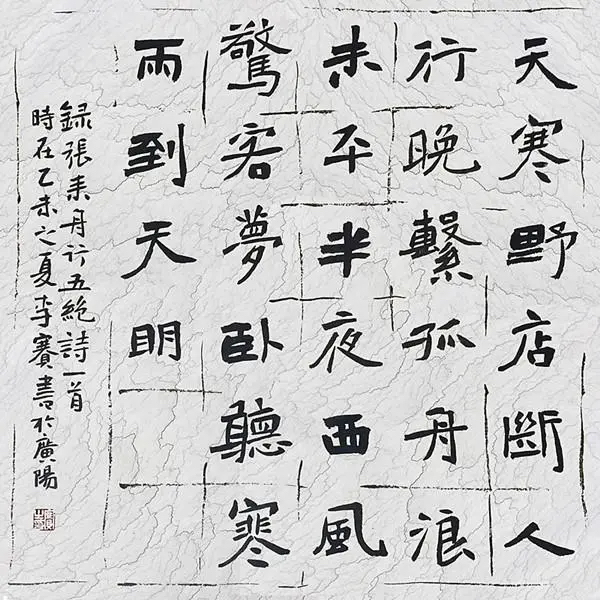 天寒野店斷人
行晚繫孤舟浪
未平半夜西風
驚客夢臥聽寒
雨到天明
録張耒舟行五絶詩一首
時在乙未之夏李賽書於廣陽